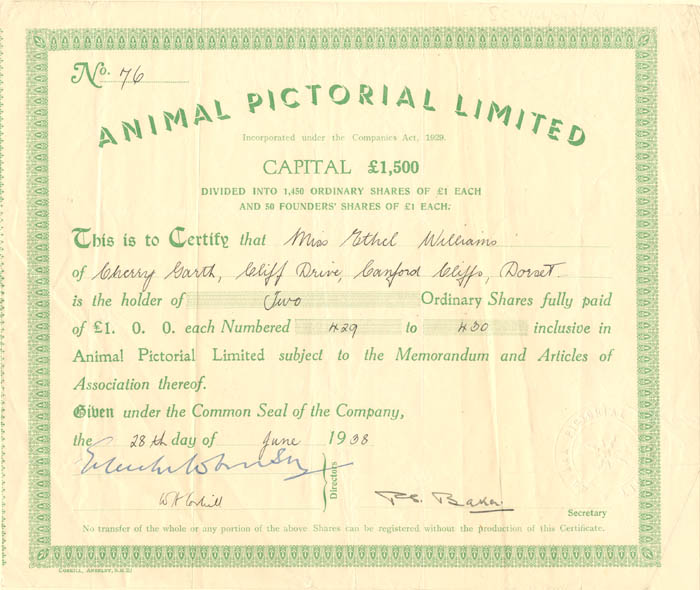 No. 76
ANIMAL PICTORIAL LIMITED
Incorporated under the Companies Act, 1929.
CAPITAL £1,500
DIVIDED INTO 1,450 ORDINARY SHARES OF £1 EACH
AND 50 FOUNDERS' SHARES OF £1 EACH.
This is to Certify that Miss Ethel Williams
of Cherry Garth, Cliff Drive, Canford Cliffs, Dorset
is the holder of Two Ordinary Shares fully paid
of £1. 0. 0. each Numbered 429 to 430 inclusive in
Animal Pictorial Limited subject to the Memorandum and Articles of
Association thereof.
Given under the Common Seal of the Company,
the 28th day of June 1938
Directors
Baker
Secretary
No transfer of the whole or any portion of the above Shares can be registered without the production of this Certificate.
PICTORIAL